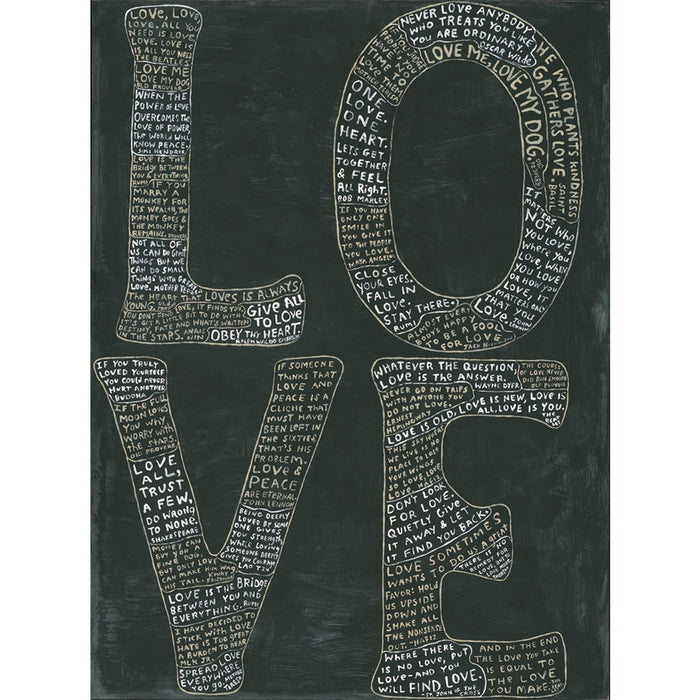 LOVE, LOVE,
LOVE. ALL YOU
NEED IS LOVE,
LOVE. LOVE IS
IS ALL YOU NEED.
THE BEATLES
LOVE ME
LOVE MY DOG
OLD PROVERB
WHEN THE
POWER OF LOVE
OVERCOMES THE
LOVE OF POWER,
THE WORLD WILL
KNOW PEACE.
JIMI HENDRIX
LOVE IS THE
BRIDGE BETWEEN
YOU & EVERYTHING
RUMI
IF YOU
MARRY A
MONKEY FOR
ITS WEALTH, THE
MONEY GOES &
THE MONKEY
REMAINS. PROVERB
NOT ALL OF
US CAN DO GREAT
THINGS BUT WE
CAN DO SMALL
THINGS WITH GREATER
LOVE. MOTHER TERESA
THE HEART THAT LOVES IS ALWAYS
YOUNG.
LOVE, IT FINDS YOU
YOU DON'T FIND
IT'S GOT A LITTLE BIT TO DO WITH
DESTINY, FATE AND WHAT'S WRITTEN
IN THE STARS. ANAIS NIN
GIVE ALL
TO LOVE
OBEY THY HEART.
RALPH WALDO EMERSON
NEVER LOVE ANYBODY
WHO TREATS YOU LIKE
YOU ARE ORDINARY.
OSCAR WILDE
HE WHO PLANTS KINDNESS
GATHERS LOVE. SAINT BASIL
LOVE ME, LOVE MY DOG. OLD PROVERB
TIME TO
LOVE THEM
MOTHER TERESA
ONE
LOVE.
ONE
HEART.
LETS GET
TOGETHER
& FEEL
ALL RIGHT.
BOB MARLEY
IF YOU HAVE
ONLY ONE
SMILE IN
YOU GIVE IT
TO THE PEOPLE
YOU LOVE.
MAYA ANGELOU
CLOSE
YOUR EYES.
FALL IN
LOVE.
STAY THERE.
RUMI
ALMOST EVERY
BODY'S HAPPY
TO BE A FOOL
FOR LOVE.
JACK NICHOLSON
IT
MATTERS
NOT WHO
YOU LOVE,
WHERE YOU
LOVE, WHEN
YOU LOVE
OR HOW YOU
LOVE, IT
MATTERS ONLY
THAT YOU
LOVE. JOHN LENNON
IF YOU TRULY
LOVED YOURSELF
YOU COULD NEVER
HURT ANOTHER
BUDDHA
IF THE FULL
MOON LOVES
YOU WHY
WORRY WITH
THE STARS.
OLD PROVERB
LOVE
ALL,
TRUST
A FEW,
DO WRONG
TO NONE.
SHAKESPEARE
MONEY CAN
BUY YOU A
FINE DOG
BUT ONLY LOVE
CAN MAKE HIM WAG
HIS TAIL. KINKY FRIEDMAN
LOVE IS THE BRIDGE
BETWEEN YOU AND
EVERYTHING. RUMI
I HAVE DECIDED TO
STICK WITH LOVE.
HATE IS TOO GREAT
A BURDEN TO BEAR
MLK JR.
SPREAD LOVE
EVERYWHERE
YOU GO. MOTHER TERESA
IF SOMEONE
THINKS THAT
LOVE AND
PEACE IS A
CLICHE THAT
MUST HAVE
BEEN LEFT IN
THE SIXTIES,
THAT'S HIS
PROBLEM.
LOVE &
PEACE
ARE ETERNAL.
JOHN LENNON
BEING DEEPLY
LOVED BY SOMEONE
GIVES YOU
STRENGTH
WHILE LOVING
SOMEONE DEEPLY
GIVES YOU COURAGE
LAO TZU
WHATEVER THE QUESTION,
LOVE IS THE ANSWER.
WAYNE DYER
THE COURSE
OF LOVE NEVER
DID RUN SMOOTH
OLD PROVERB
NEVER GO ON TRIPS
WITH ANYONE YOU
DO NOT LOVE.
ERNEST HEMINGWAY
LOVE IS OLD, LOVE IS NEW, LOVE IS
ALL. LOVE IS YOU.
THE BEATLES
DON'T LOOK
FOR LOVE.
QUIETLY GIVE
IT AWAY & LET
IT FIND YOU BACK.
LOVE SOMETIMES
WANTS TO DO US A GREAT
FAVOR: HOLD
US UPSIDE
DOWN AND
SHAKE ALL
THE NONSENSE
OUT.
WHERE THERE
IS NO LOVE, PUT
LOVE-AND YOU
WILL FIND LOVE.
ST. JOHN OF THE CROSS
AND IN THE END
THE LOVE YOU TAKE
IS EQUAL TO
THE LOVE
YOU MAKE.